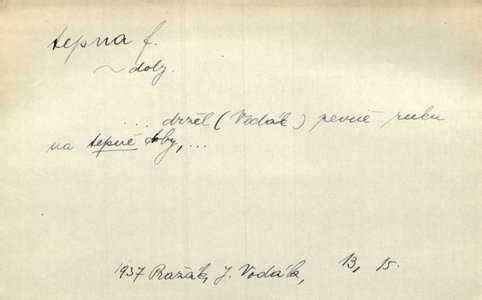 tepna f.
~ doby.
... držel (Vodák) pevně ruku
na tepně doby,...
1937 Pražák, J. Vodák, 13, 15.